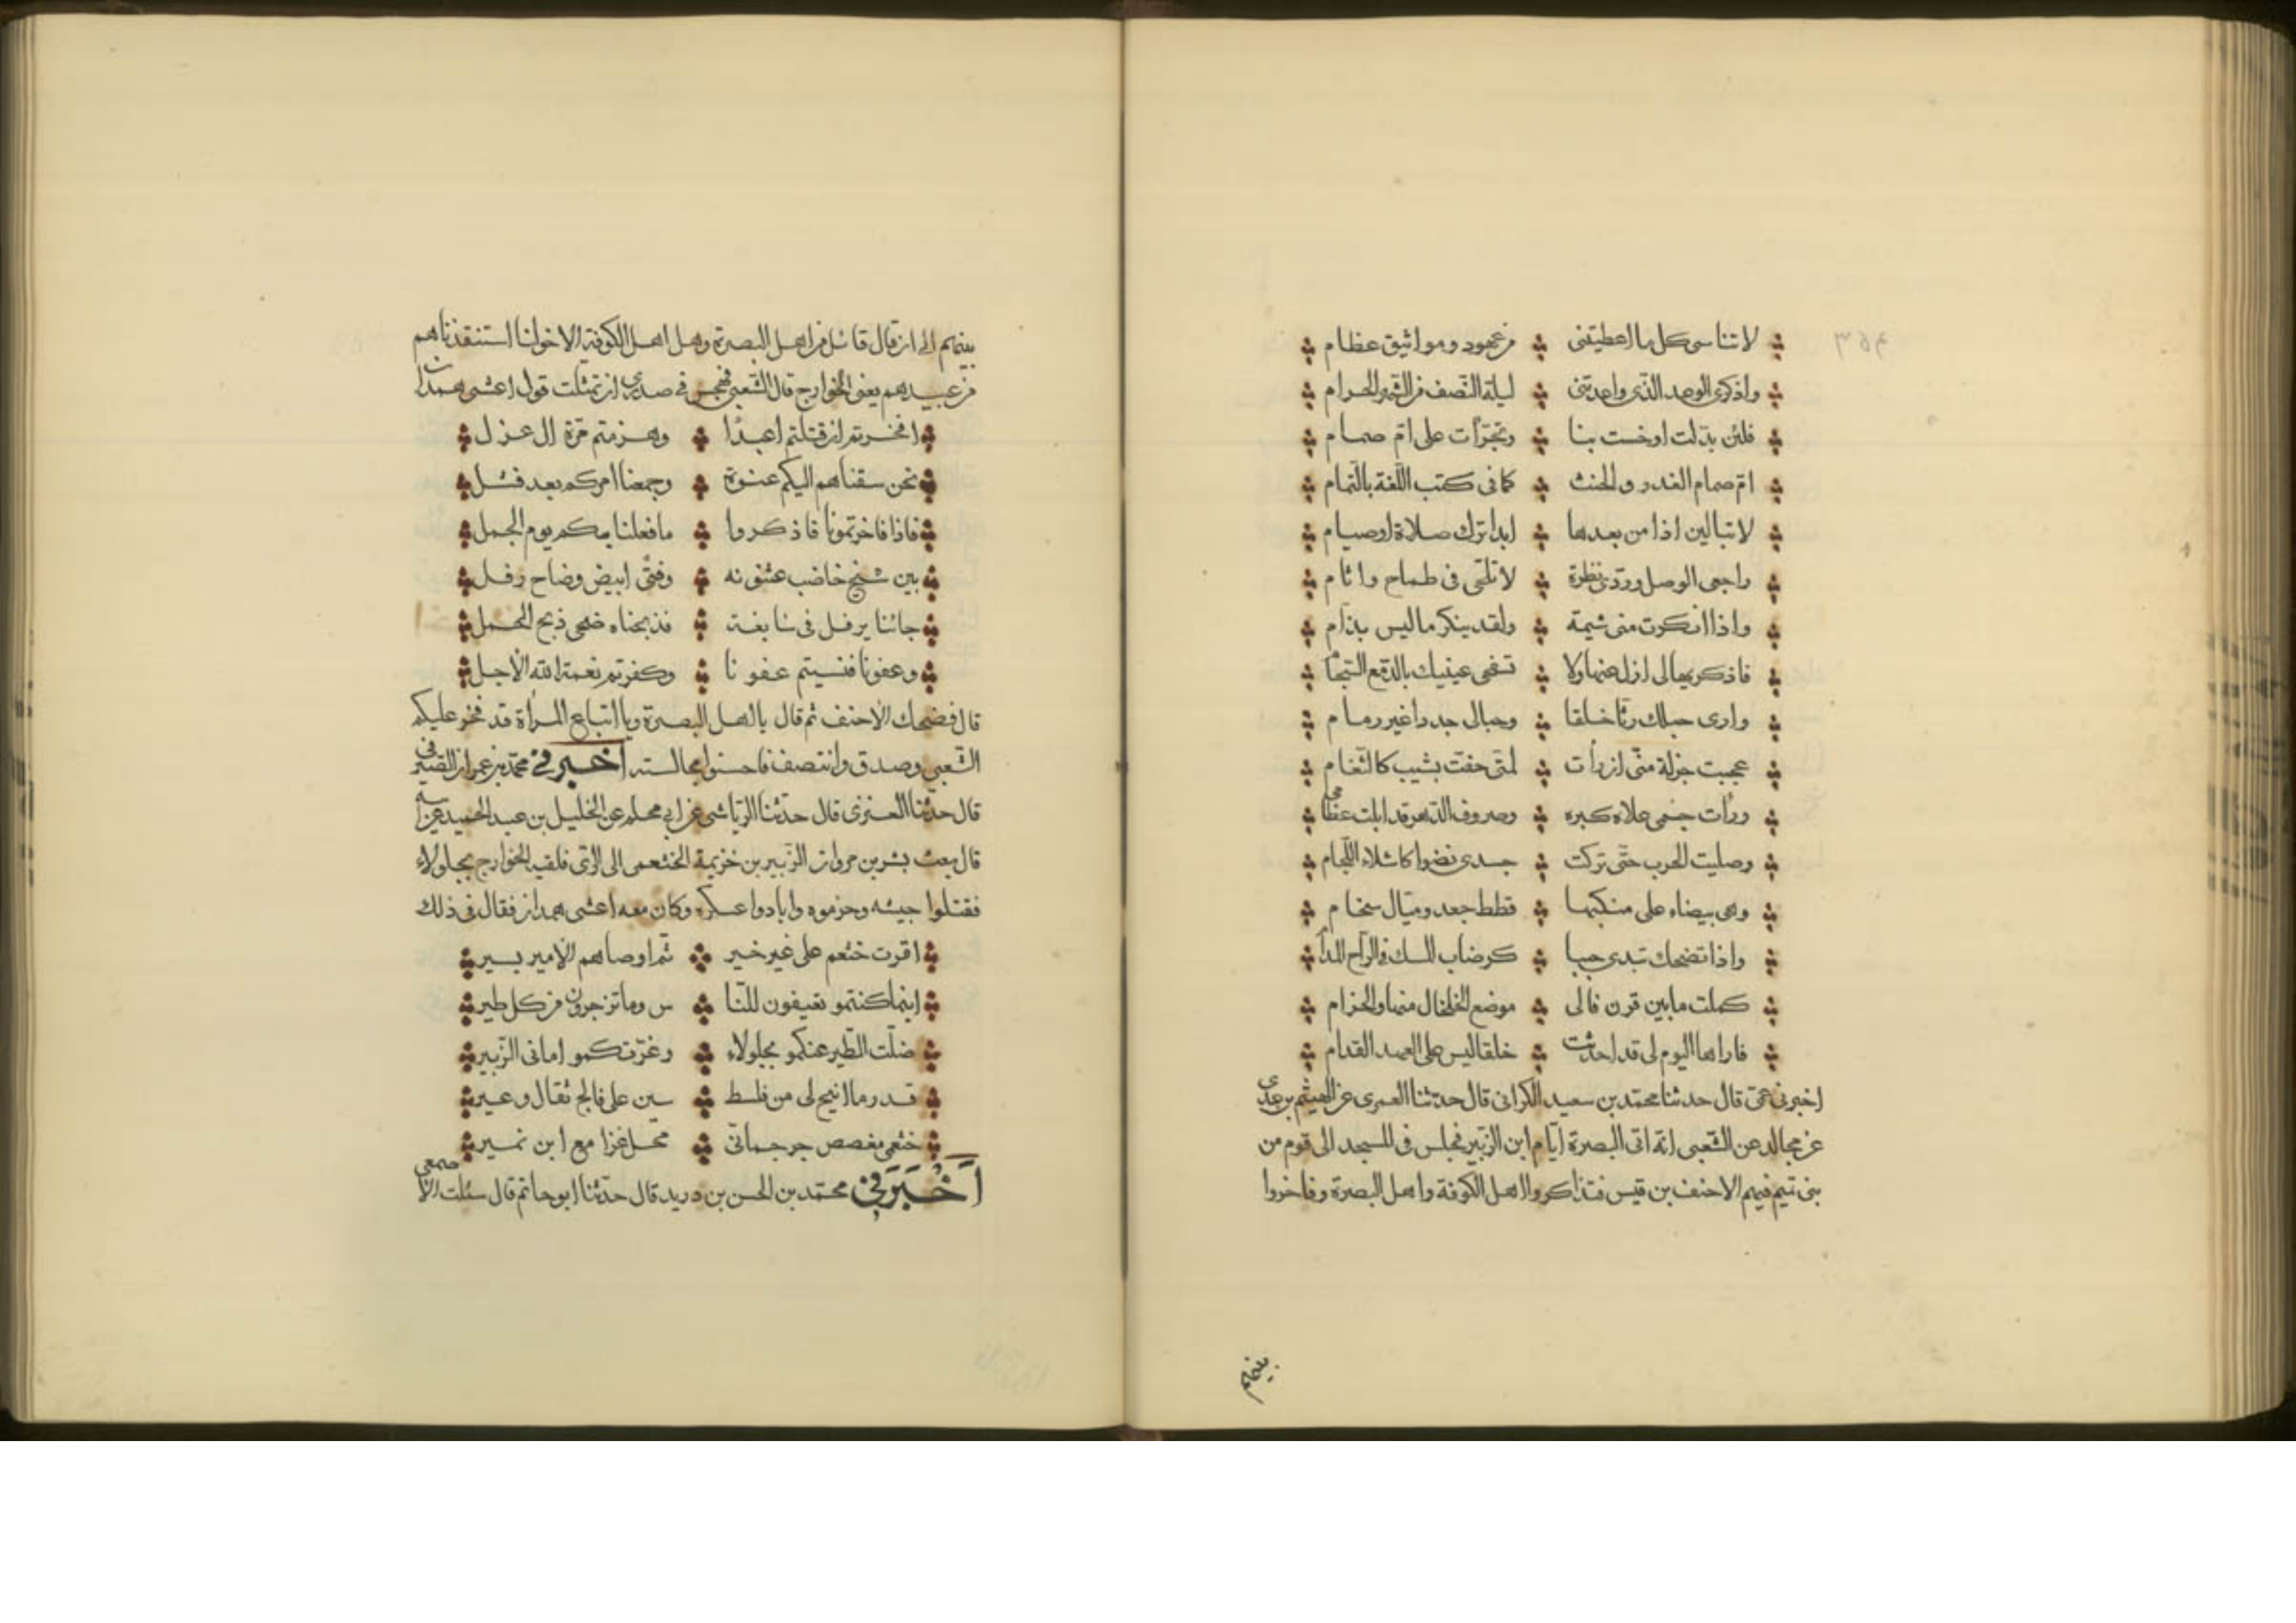 لا تناسى كل ما اعطيتنى من عهود ومواثيق عظام
واذكرى الوعد الذى واعدتنى ليلة النصف من الشهر الحرام
فلئن بدّلت او خست بنا وتجرّأت على امّ صمام
امّ صمام الغدر والحنث كما فى كتب اللّغة بالتمام
لا تبالين اذا من بعدها ابدا ترك صلاة او صيام
راجعى الوصل وردّى نظرة لا تلجّى فى طماح واثام
واذا انكرت منى شيمة ولقد ينكر ما ليس بذام
فاذكريها لى ازل عنها ولا تسفحى عينيك بالدّمع السّجام
وارى حبلك رثّا خلقا وحبالى جددا غير رمام
عجبت جزلة منّى ان رأت لمّتى حفّت بشيب كالثّغام
ورأت جسمى علاه كبره وصروف الدّهر قد ابلت عظامى
وصليت الحرب حتّى تركت جسدى نضوا كاشلاء اللّجام
وهى بيضاء على منكبها قطط جعد وميّال سخام
واذا تضحك تبدى حببا كرضاب المسك فى الرّاح المدام
كملت ما بين قرن فالى موضع الخلخال منها والخزام
فاراها اليوم لى قد احدثت خلقا ليس على العهد القدام
اخبرنى عمّى قال حدثنا محمّد بن سعيد الكرانى قال حدّثنا العمرى عن الهيثم بن عدى
عن مجالد عن الشّعبى انّه اتى البصرة ايّام ابن الزّبير فجلس فى المسجد الى قوم من
بنى تميم فيهم الاحنف بن قيس فتذاكروا اهل الكوفة واهل البصرة وفاخروا
بينهم
بينهم الى ان قال قائل من اهل البصرة وهل اهل الكوفة الا خولنا استنقذناهم
من عبيدهم يعنى الخوارج قال الشّعبى فهجس فى صدرى ان تمثّلت قول اعشى همدان
افخرتم ان قتلتم اعبدًا وهزمتم مرّة ال عزل
نحن سقناهم اليكم عنوة وجمعنا امركم بعد فشل
فاذا فاخرتمونا فاذكروا ما فعلنا بكم يوم الجمل
بين شيخ خاضب عثنونه وفتًى ابيض وضاح رفل
جائنا يرفل فى سابغة فذبحناه ضحى ذبح الحمل
وعفونا فنسيتم عفونا وكفرتم نعمة الله الاجل
قال فضحك الاحنف ثم قال يا اهل البصرة ويا اتباع المرأة قد فخر عليكم
الشّعبى وصدق وانتصف فاحسنوا مجالسته اخبرنى محمّد بن عمران الصّيرفى
قال حدّثنا العنزى قال حدّثنا الرّياشى عن ابى محلم عن الخليل بن عبد الحميد عن ابيه
قال بعث بشر بن مروان الزّبير بن خزيمة الخثعمى الى الرّى فلقيه الخوارج بجلولاء
فقتلوا جيشه وهزموه وابادوا عسكره وكان معه اعشى همدان فقال فى ذلك
اقرت خثعم على غير خير ثم اوصاهم الامير بسير
اينما كنتمو تعيفون للنّا س وما تزجرون من كل طير
ضلّت الطّير عنكمو بجلولاء وغرّتكمو امانى الزّبير
قدر ما اتيح لى من فلسط سين على فالج ثقال وعير
خثعمى مغصص جرجمانى محّل غزا مع ابن نمير
اَخْبَرَنِى محمّد بن الحسن بن دريد قال حدّثنا ابو حاتم قال سئلت الاصمعى